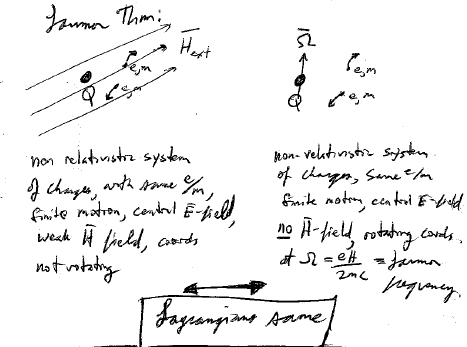 Larmor Thm:
H̅ext
e,m
Q
e,m
Ω̅
e,m
Q
e,m
non relativistic system
of charges, with same e/m,
finite motion, central E̅-field,
weak H̅ field, coords
not rotating
non-relativistic system
of charges, same e/m
finite motion, central E-field
no H̅-field, rotating coords.
at Ω = eH/2mc = Larmor
frequency.
Lagrangians same